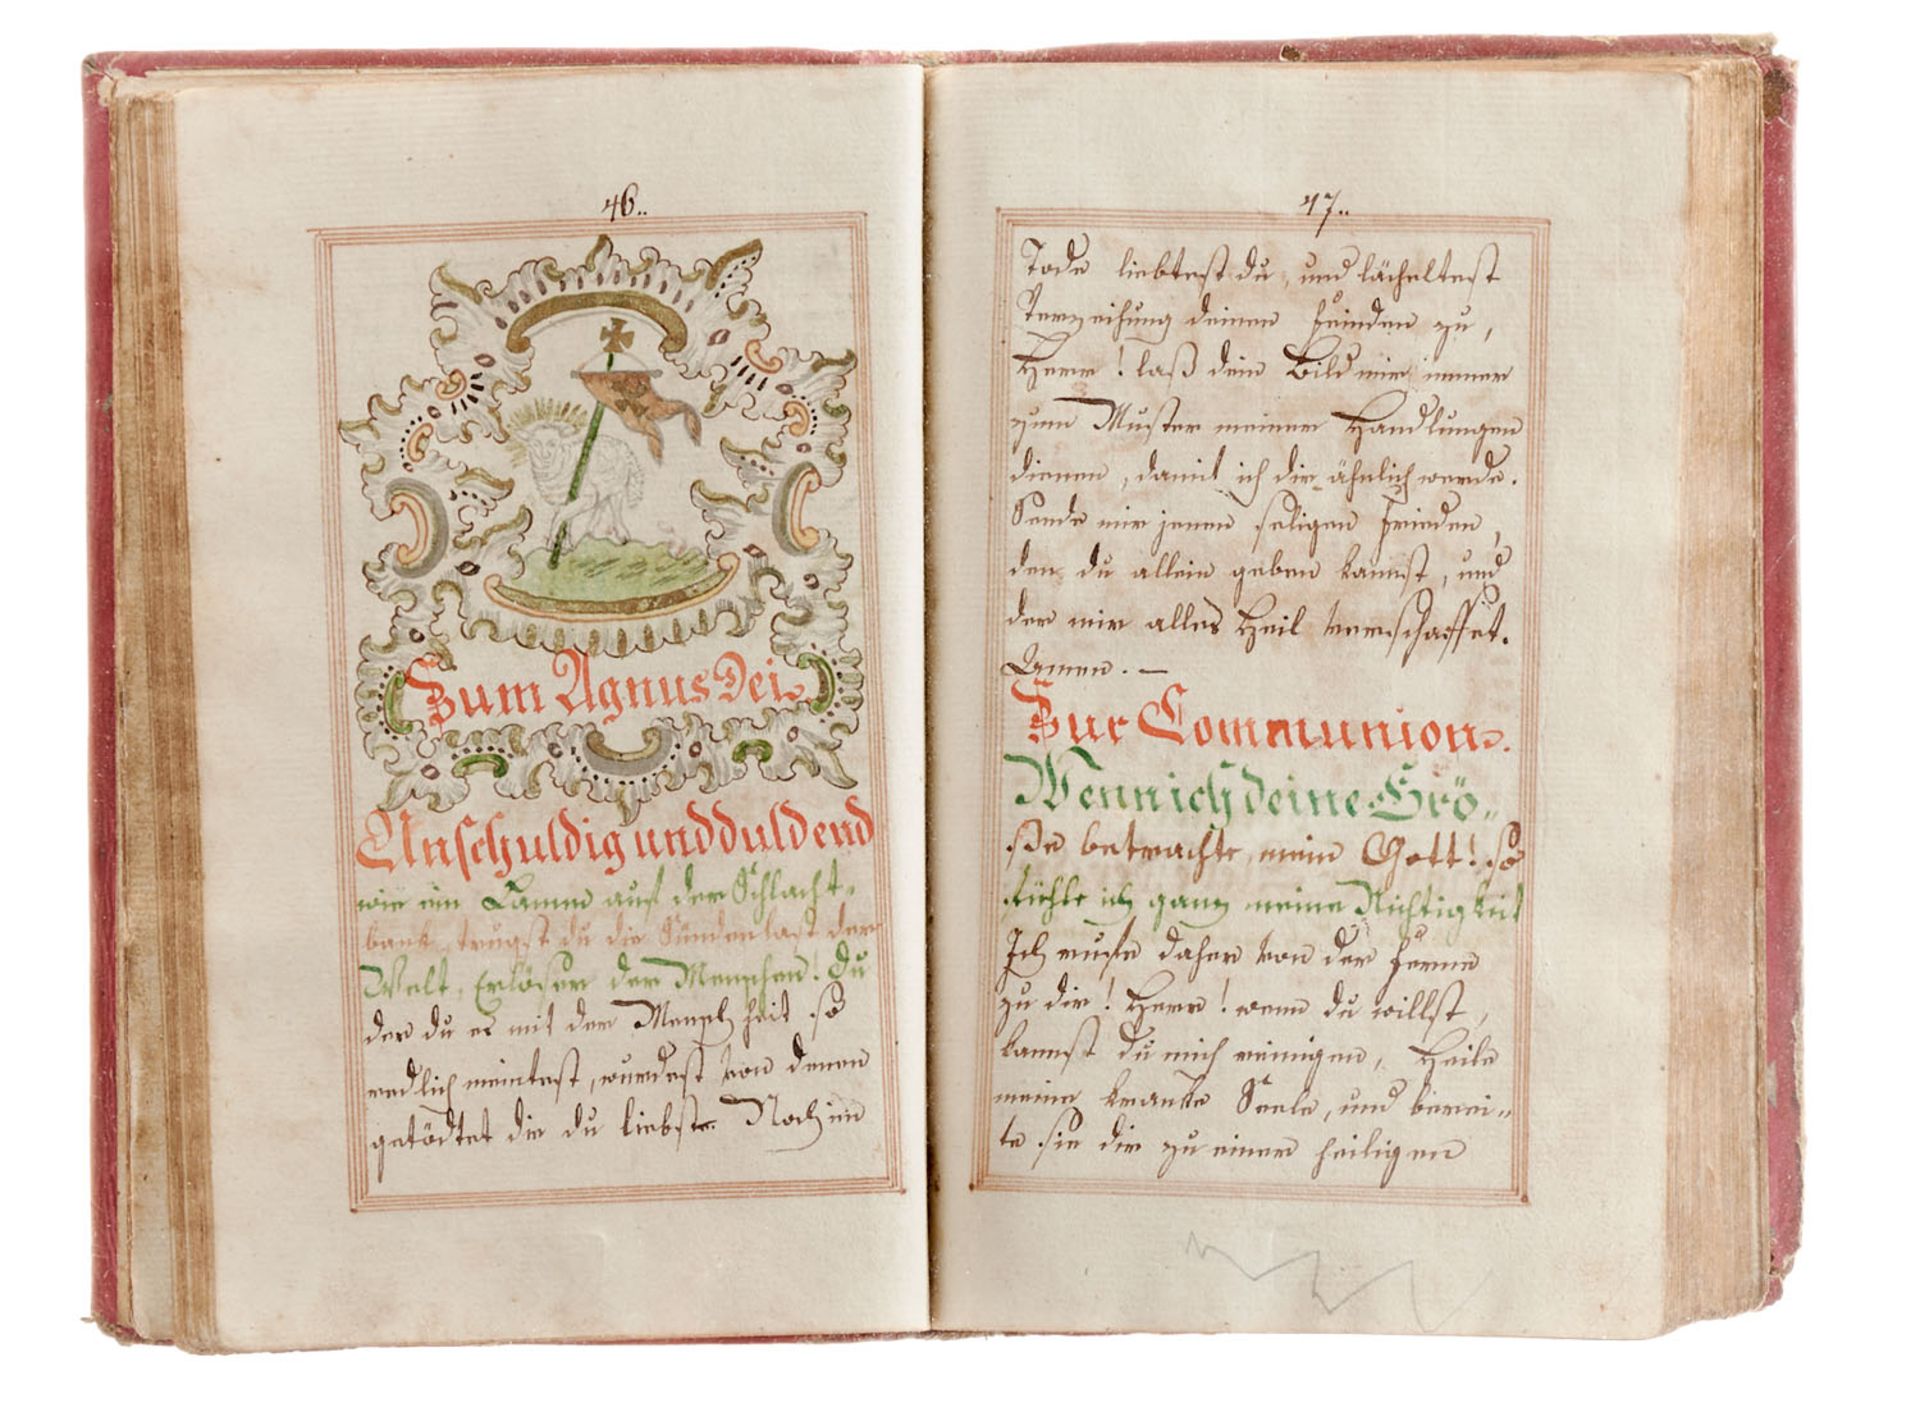 46..
Zum Agnus Dei.
Unschuldig und duldend
wie ein Lamm auf der Schlacht-
bank, trugst du die Sündenlast der
Welt, Erlöser der Menschen! Du
der du es mit der Menschheit so
redlich meintest, wurdest von denen
getödtet die du liebst. Noch im
47..
Tode liebtest du, und lächeltest
Verzeihung deinen Feinden zu,
Herr! laß dein Bild mir immer
zum Muster meiner Handlungen
dienen, damit ich dir ähnlich werde.
Sende mir jenen seligen Frieden,
den du allein geben kannst, und
der mir alles Heil verschaffet.
Amen. —
Zur Communion.
Wenn ich deine Grö„
ße betrachte, mein Gott! so
fühle ich ganz meine Nichtigkeit
Ich rufe daher von der Ferne
zu dir! Herr! wenn du willst,
kannst du mich reinigen, Heile
meine kranke Seele, und berei„
te sie dir zu einer heiligen